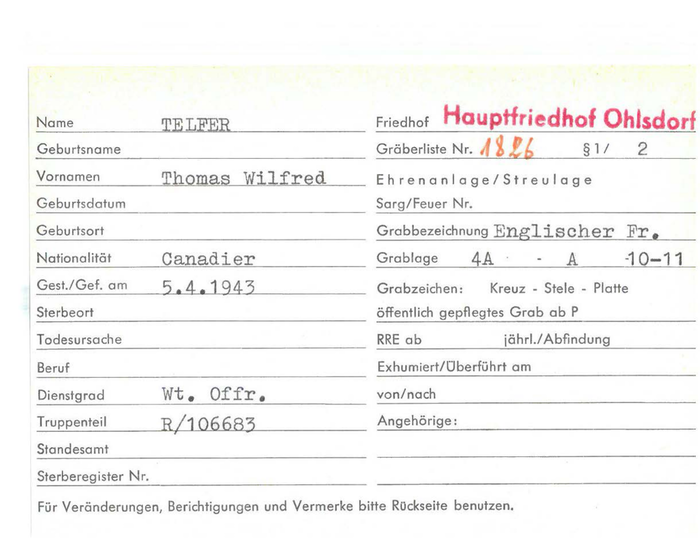 Name TELFER
Geburtsname
Vornamen Thomas Wilfred
Geburtsdatum
Geburtsort
Nationalität Canadier
Gest./Gef. am 5.4.1943
Sterbeort
Todesursache
Beruf
Dienstgrad Wt. Offr.
Truppenteil R/106683
Standesamt
Sterberegister Nr.
Friedhof Hauptfriedhof Ohlsdorf
Gräberliste Nr. 1826 §1/ 2
Ehrenanlage/Streulage
Sarg/Feuer Nr.
Grabbezeichnung Englischer Fr.
Grablage 4A - A -10-11
Grabzeichen: Kreuz - Stele - Platte
öffentlich gepflegtes Grab ab P
RRE ab jährl./Abfindung
Exhumiert/Überführt am
von/nach
Angehörige:
Für Veränderungen, Berichtigungen und Vermerke bitte Rückseite benutzen.